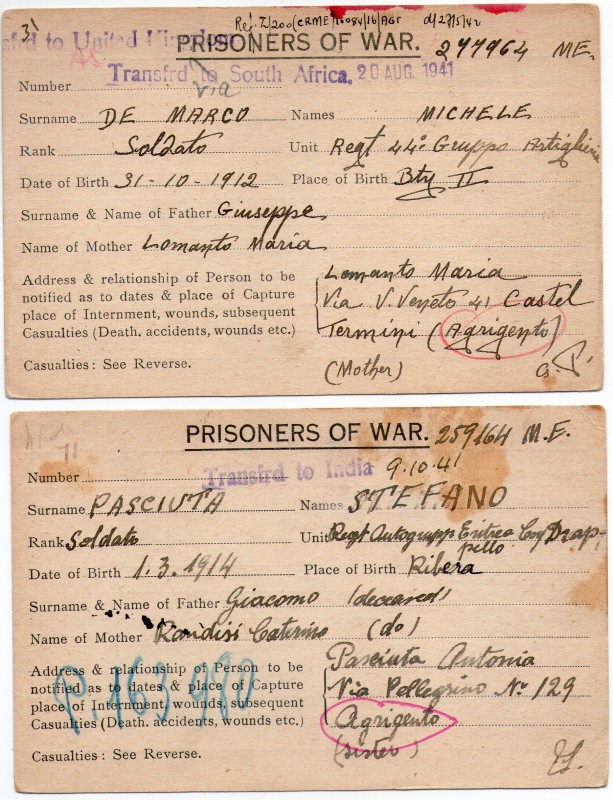 31 Ref. Z/200/CRME/10084/16/AG5 d/27/5/42
sfrd to United Kingdom PRISONERS OF WAR. 277964 ME.
Transfrd to South Africa. 20 AUG. 1941
Number via
Surname DE MARCO Names MICHELE
Rank Soldato Unit Regt 44° Gruppo Artiglieria
Date of Birth 31-10-1912 Place of Birth Bty II
Surname & Name of Father Giuseppe
Name of Mother Lomanto Maria
Address & relationship of Person to be
notified as to dates & place of Capture
place of Internment, wounds, subsequent
Casualties (Death. accidents, wounds etc.)
Lomanto Maria
Via V. Veneto 41 Castel
Termini (Agrigento)
(Mother)
Casualties : See Reverse.
PRISONERS OF WAR. 259164 M.E.
11
Number Transfrd to India 9.10.41
Surname PASCIUTA Names STEFANO
Rank Soldato Unit Regt Autogrupp Eritrea Coy Drap-
pello
Date of Birth 1.3.1914 Place of Birth Ribera
Surname & Name of Father Giacomo (deceased)
Name of Mother Randisi Caterina (do)
Address & relationship of Person to be
notified as to dates & place of Capture
place of Internment, wounds, subsequent
Casualties (Death, accidents, wounds etc.)
P. 163990
Pasciuta Antonia
Via Pellegrino N° 129
Agrigento
(sister)
Casualties : See Reverse.